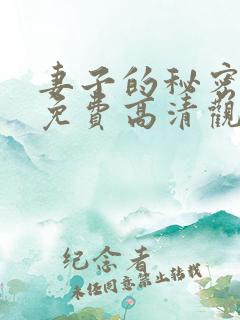 妻子的秘密
免費高清觀
纪念者
未经同意禁止转载